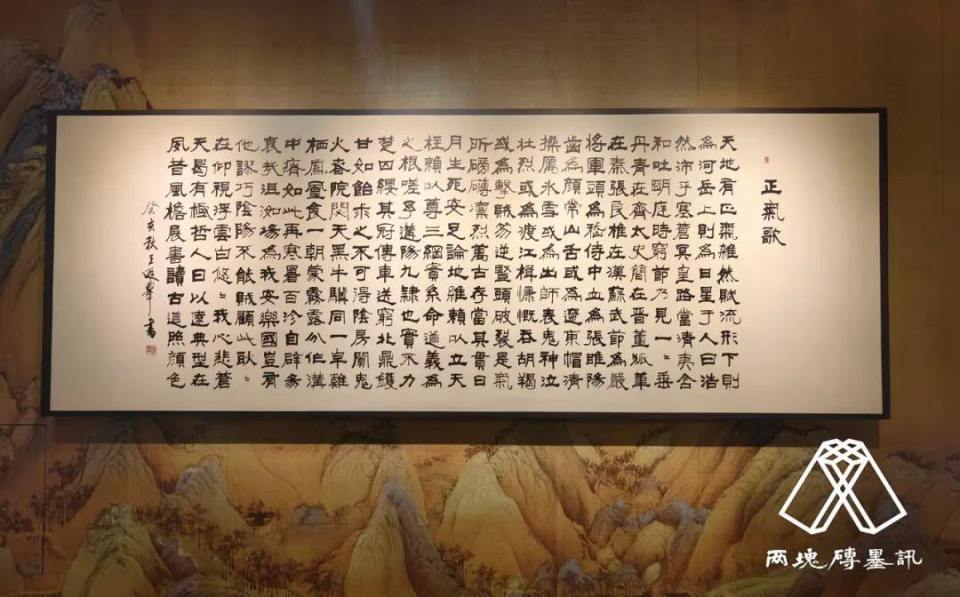 正氣歌
天地有正氣雜然賦流形下則
為河岳上則為日星于人曰浩
然沛乎塞蒼冥皇路當清夷含
和吐明庭時窮節乃見一一垂
丹青在齊太史簡在晉董狐筆
在秦張良椎在漢蘇武節為嚴
將軍頭為嵇侍中血為張睢陽
齒為顏常山舌或為遼東帽清
操厲氷雪或為出師表鬼神泣
壯烈或為渡江楫慷慨吞胡羯
或為擊賊笏逆豎頭破裂是氣
所磅礴凛烈萬古存當其貫日
月生死安足論地維賴以立天
柱賴以尊三綱實系命道義為
之根嗟予遘陽九隸也實不力
楚囚纓其冠傳車送窮北鼎鑊
甘如飴求之不可得陰房闃鬼
火春院閟天黑牛驥同一皁雞
栖鳳凰食一朝蒙霧露分作溝
中瘠如此再寒暑百沴自辟易
哀哉沮洳場為我安樂國豈有
他謬巧陰陽不能賊顧此耿〻
在仰視浮雲白悠〻我心悲蒼
天曷有極哲人日以遠典型在
夙昔風檐展書讀古道照顏色
癸亥秋王遐舉書
两塊磚墨訊